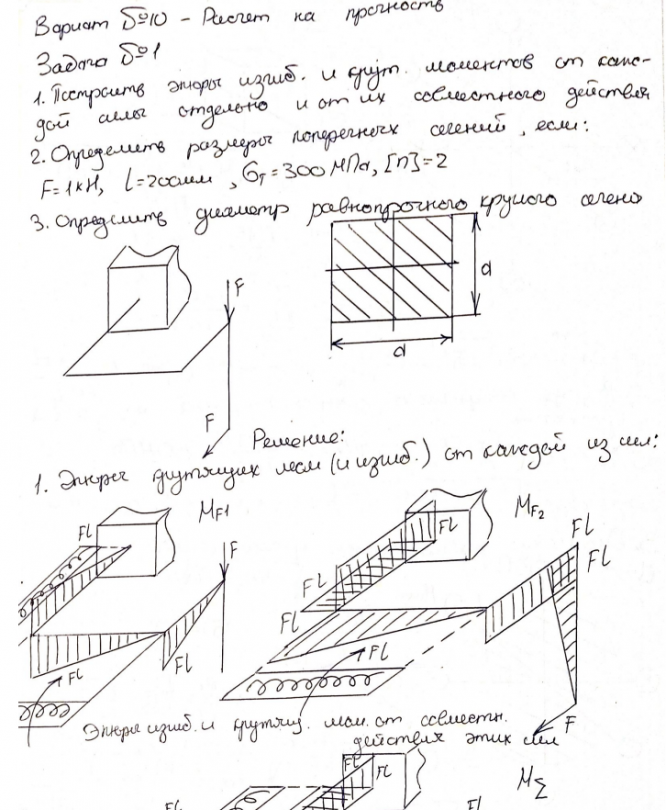 Вариант №10 - Расчет на прочность
Задача №1
1. Построить эпюры изгиб. и крут. моментов от каж-
дой силы отдельно и от их совместного действия
2. Определить размеры поперечных сечений, если:
F=1кН, l=200мм, σт=300МПа, [n]=2
3. Определить диаметр равнопрочного круглого сечения
F
d
d
F
Решение:
1. Эпюры крутящих мом (и изгиб.) от каждой из сил:
Fl MF1 F Fl MF2 Fl
Fl Fl
Fl
Fl Fl Fl
F
Эпюры изгиб. и крутящ. мом. от совместн.
действия этих сил
Fl Fl MΣ
Fl Fl